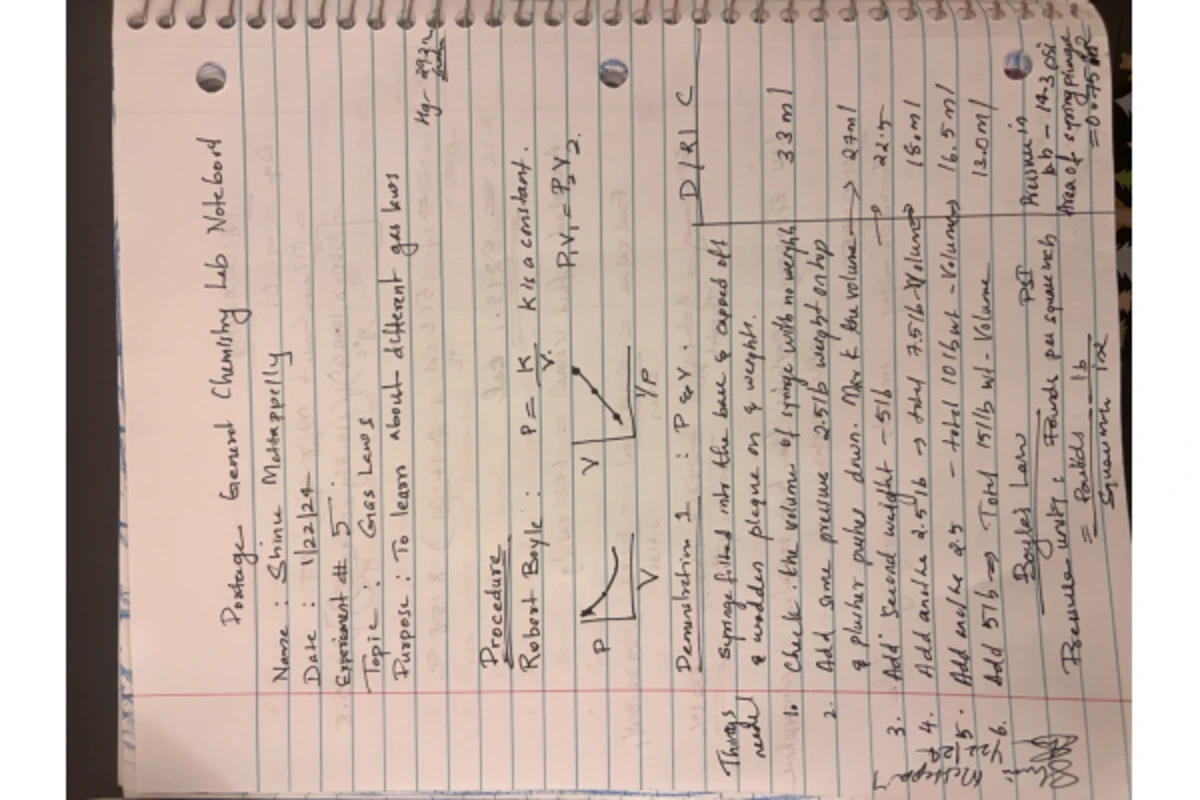 Portage General Chemistry Lab Notebook
Name : Shinu Mattappelly
Date : 1/22/24
Experiment # 5 :
Topic : Gas Laws
Purpose : To learn about different gas laws
Hg - 29.2 in
Procedure
Robert Boyle : P = K/V. K is a constant.
P₁V₁ = P₂V₂.
P
V
V
1/P
Demonstration 1 : P & V.
D/R/C
Things needed
Syringe fitted into the base & capped off
& wooden plaque on & weights.
1. Check the volume of syringe with no weight 33 ml
2. Add some pressure 2.5 lb weight on top
& plusher pushes down. Mark the volume → 27 ml
3. Add second weight - 5 lb → 22.5
4. Add anothe 2.5 lb → total 7.5 lb - Volume → 18.ml
5. Add anothe 2.5 - total 10 lb wt - Volume → 16.5 ml
6. Add 5 lb → Total 15 lb wt - Volume 13.0 ml
Boyles Law PSI
Pressure in
lb - 14.3 psi
Pressure units, Pounds per square inch
Area of syring plunger
= 0.075 in 2
= Pounds/Square in lb/in2
1/22/24